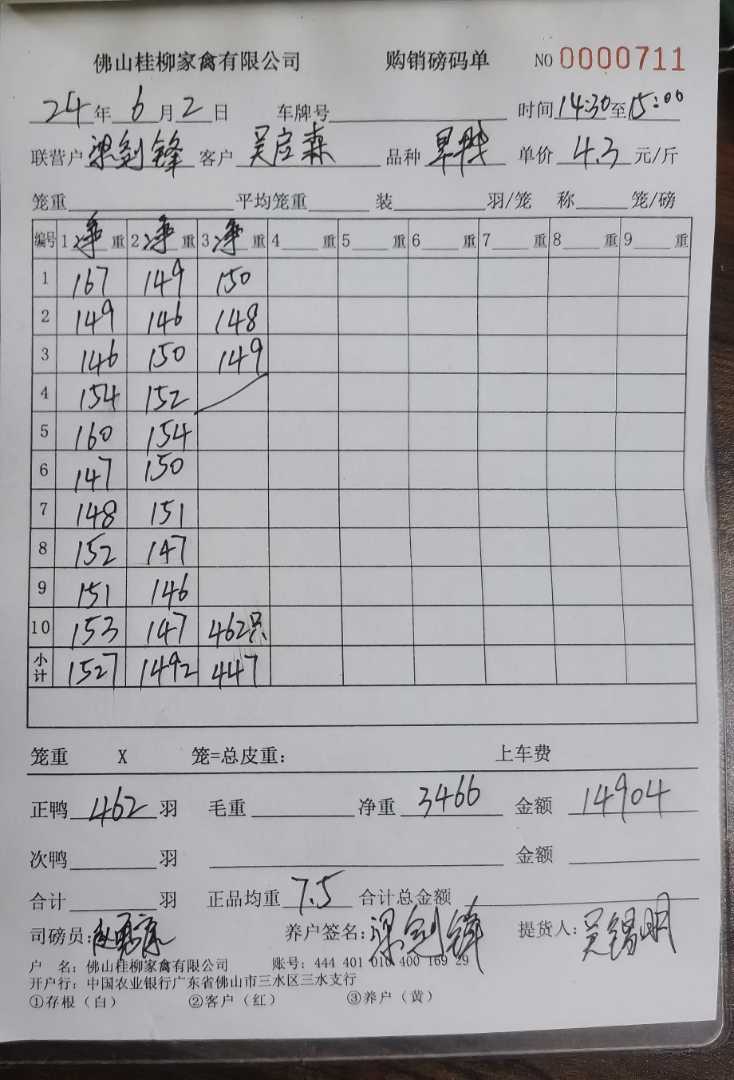 佛山桂柳家禽有限公司 购销磅码单 NO 0000711
24年6月2日 车牌号 时间14:30至15:00
联营户 梁剑锋 客户 吴启森 品种 单价 4.3 元/斤
笼重 平均笼重 装 羽/笼 称 笼/磅
编号 1 净重 2 净重 3 净重 4 重 5 重 6 重 7 重 8 重 9 重
1 167 149 150
2 149 146 148
3 146 150 149
4 154 152
5 160 154
6 147 150
7 148 151
8 152 147
9 151 146
10 153 147 462只
小计 1527 1492 447
笼重 X 笼=总皮重: 上车费
正鸭 462 羽 毛重 净重 3466 金额 14904
次鸭 羽 金额
合计 羽 正品均重 7.5 合计总金额
司磅员: 养户签名: 梁剑锋 提货人: 吴锡明
户 名: 佛山桂柳家禽有限公司 账号: 444 401 010 400 169 29
开户行: 中国农业银行广东省佛山市三水区三水支行
①存根（白） ②客户（红） ③养户（黄）